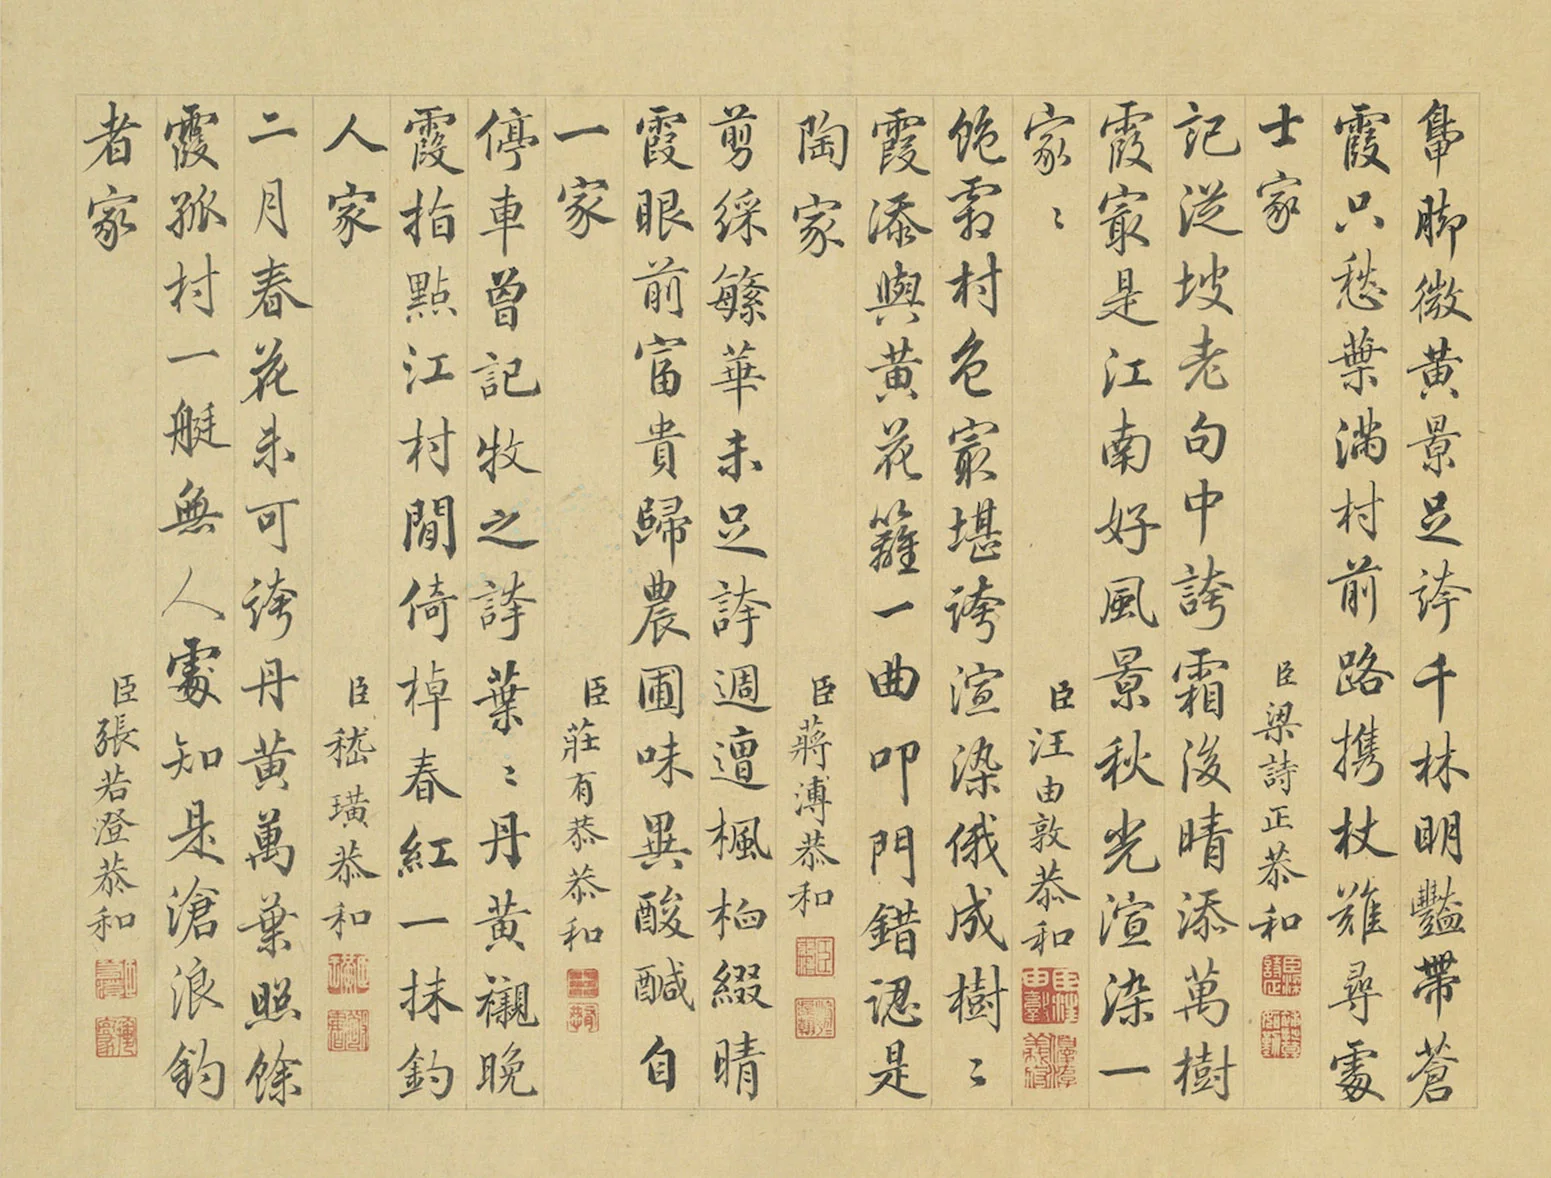 鳧脚微黃景足誇千林明豔帶蒼
霞只愁葉滿村前路携杖難尋處
士家
臣梁詩正恭和
記從坡老句中誇霜後晴添萬樹
霞最是江南好風景秋光渲染一
家〻
臣汪由敦恭和
飽霜村色最堪誇渲染俄成樹〻
霞添與黃花籬一曲叩門錯認是
陶家
臣蔣溥恭和
剪綵繁華未足誇週遭楓桕綴晴
霞眼前富貴歸農圃味異酸鹹自
一家
臣莊有恭恭和
停車曾記牧之誇葉〻丹黃襯晚
霞指點江村閒倚棹春紅一抹釣
人家
臣嵇璜恭和
二月春花未可誇丹黃萬葉照餘
霞孤村一艇無人處知是滄浪釣
者家
臣張若澄恭和